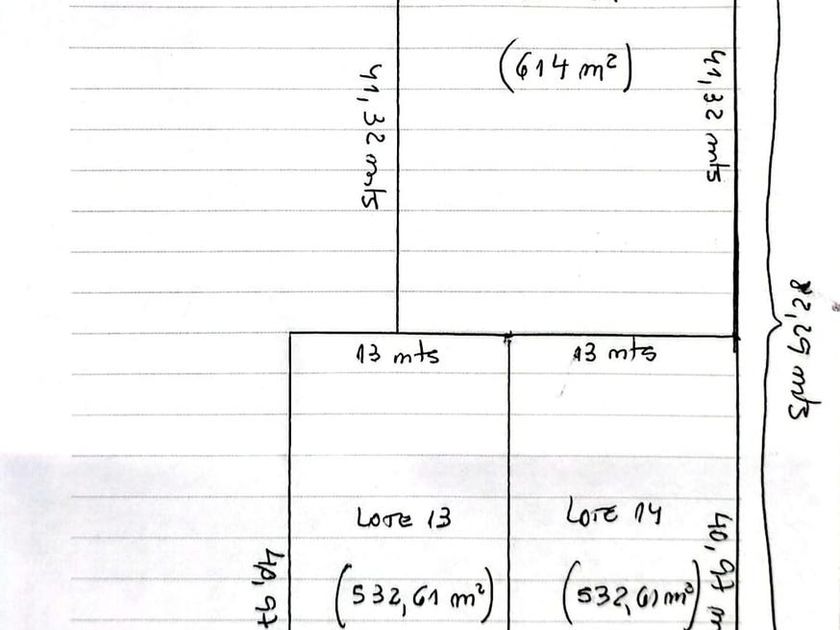 (614 m²)
41,32 mts
41,32 mts
82,29 mts
13 mts
13 mts
LOTE 13
LOTE 14
40,97
40,97 m
(532,61 m²)
(532,61 m²)